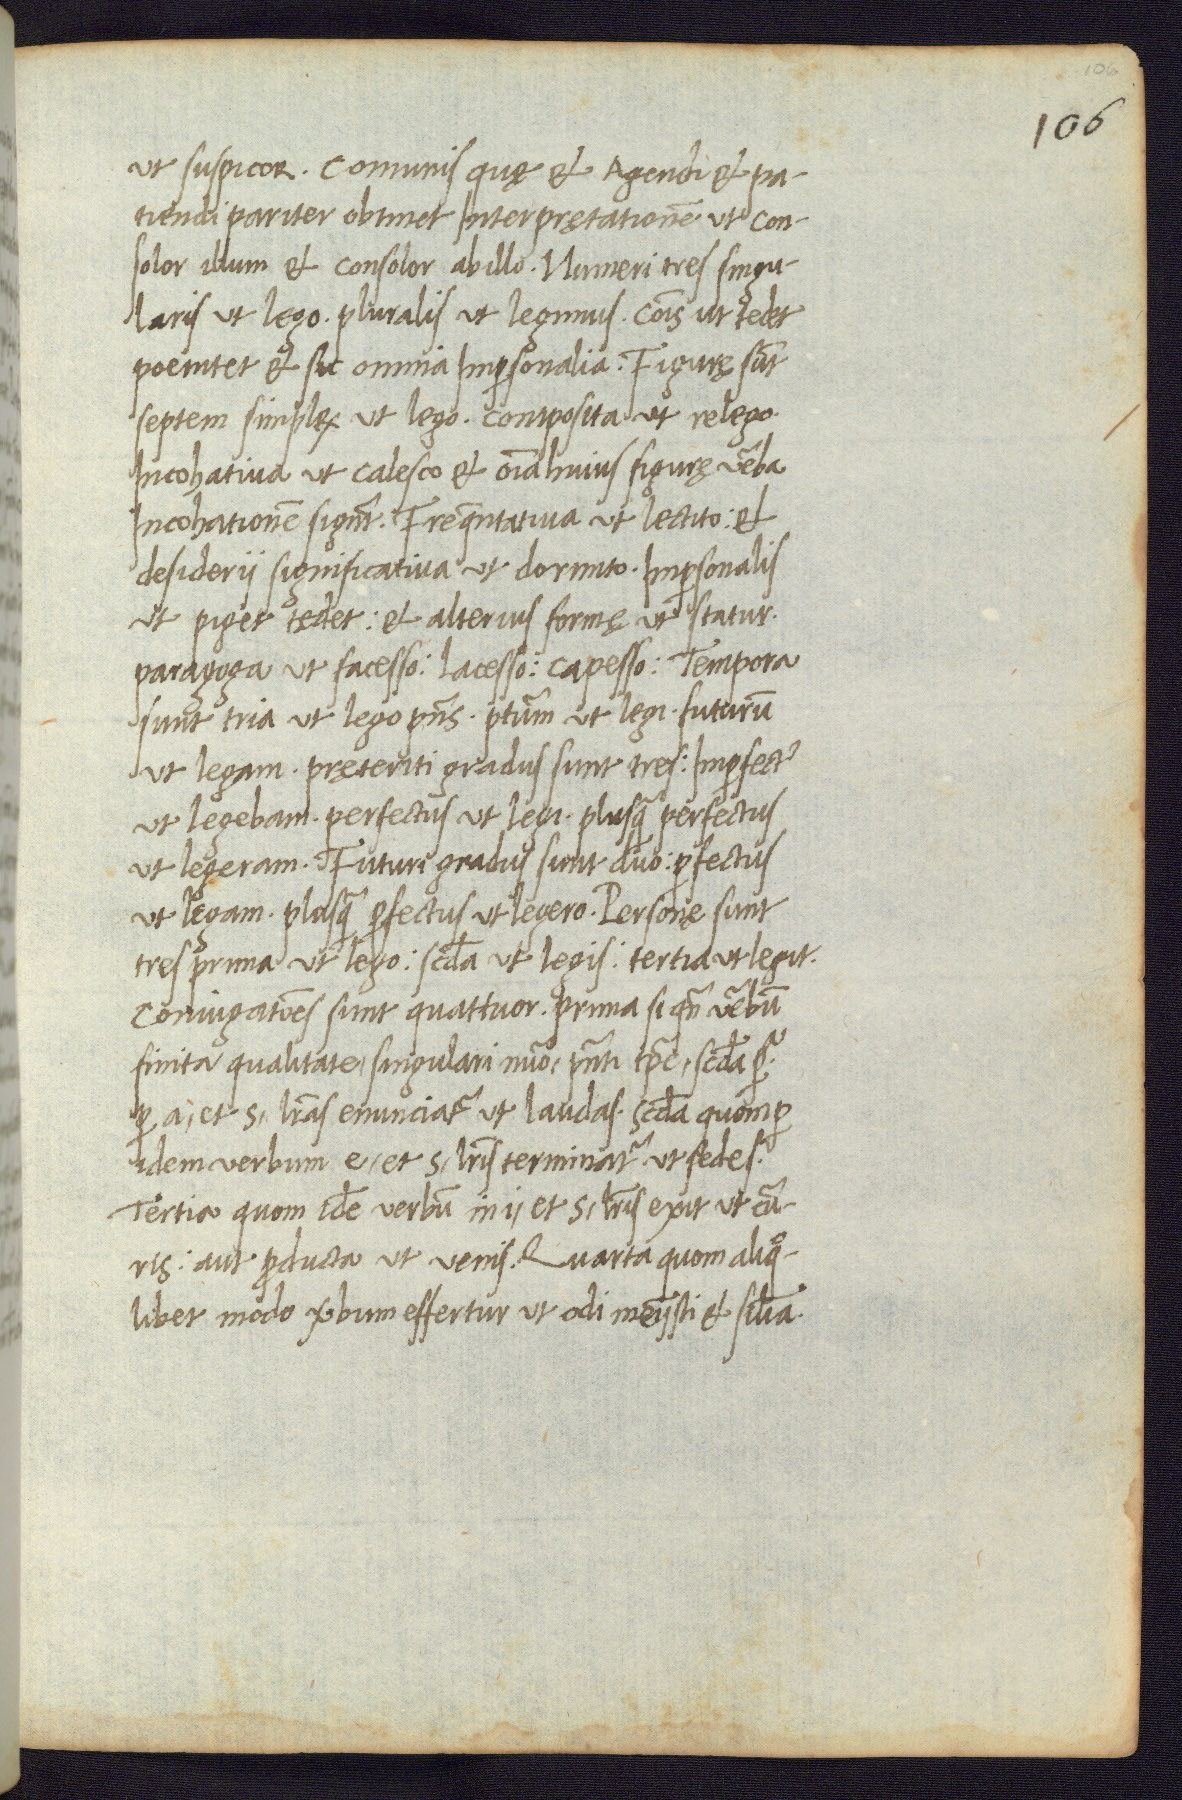 106
106
ut suspicor. Comunis quę & Agendi & pa-
tiendi pariter obtinet Interprętationē ut con-
solor illum & consolor abillo. Numeri tres singu-
laris ut lego. pluralis ut legimus. Coīs ut tedet
poenitet & sic omnia Imꝑsonalia: Figurę sūt
septem simplex ut lego. Composita ut relego.
Incohativa ut calesco & oīa huius figurę v̄ba
Incohationē signāt. Freq̄ntativa ut lectito: &
desiderij significativa ut dormito. Imꝑsonalis
ut piget tędet: & alterius formę ut statur.
paragoga ut facesso: lacesso: capesso: Tempora
sunt tria ut lego pn̄s. ptūm ut legi. futurū
ut legam. pręteriti gradus sunt tres: Imꝑfectꝰ
ut legebam. perfectus ut legi. plusq̄ perfectus
ut legeram. Futuri gradus sunt duo: ꝑfectus
ut legam. plusq̄ ꝑfectus ut legero. Personę sunt
tres prima ut lego: scd̄a ut legis: tertia ut legit.
Coniugatiōes sunt quattuor. prima si qn̄ v̄bū
finita qualitate, singulari nūo, pn̄ti tp̄e, scd̄a ꝑ.
ꝑ a, et s, lr̄as enunciat̄ ut laudas. Scd̄a quom ꝑ
idem verbum e, et s, lr̄is terminat̄ ut sedes.
Tertia quom idē verbū in i, et s, lr̄is exit ut cū-
ris: aut ꝓducta ut venis. Quarta quom aliq̊-
libet modo v̄bum effertur ut odi meīsti & sīlia.